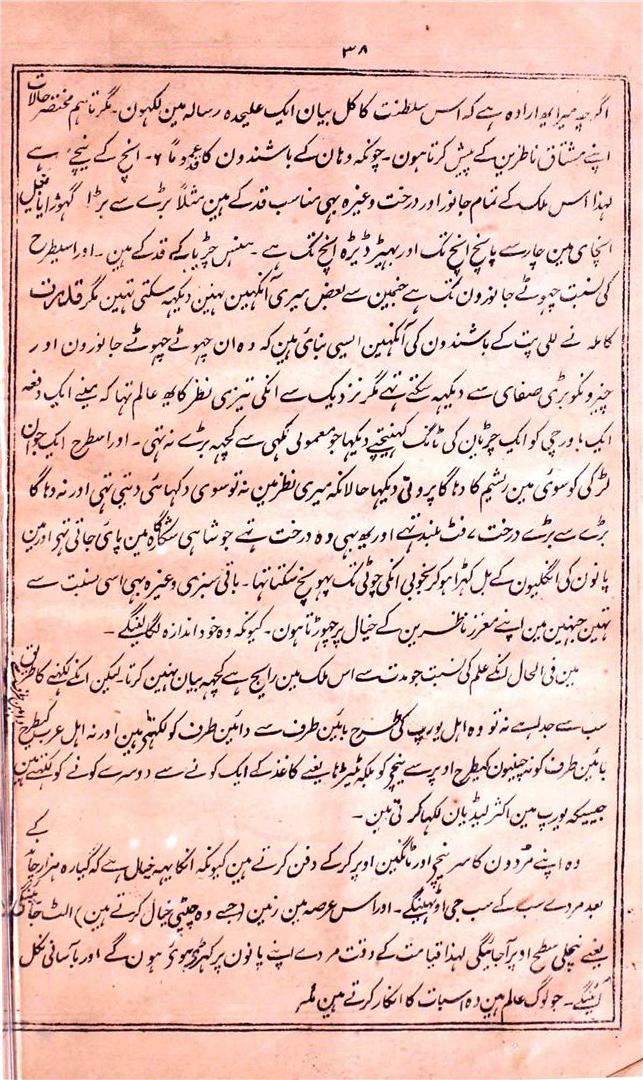 ۳۸
اگرچہ میرا یہ ارادہ ہے کہ اس سلطنت کا کل بیان ایک علیحدہ رسالہ مین لکہون۔ مگر تاہم مختصر حالات
اپنے مشتاق ناظرین کے پیش کرتا ہون۔ چونکہ وہان کے باشندون کا قد عموماً ۶۔ انچ کے نیچے ہے
لہذا اس ملک کے تمام جانور اور درخت وغیرہ بہی مناسب قد کے ہین مثلاً بڑے سے بڑا گہوڑا یا بیل
انچای مین چار سے پانچ انچ تک اور بہیڑ ڈیڑہ انچ تک ہے۔ ہنس چڑیا کے قد کے ہین۔ اور اسیطرح
کی نسبت چہوٹے جانورون تک ہے جنہین سے بعض میری آنکہین نہین دیکہہ سکتی تہین مگر قدرت
کاملہ نے للی پت کے باشندون کی آنکہین ایسی بنائی ہین کہ وہ ان چہوٹے چہوٹے جانورون اور
چیزونکو بڑی صفای سے دیکہہ سکتے تہے مگر نزدیک سے انکی تیزی نظر کا یہ عالم تہا کہ مینے ایک دفعہ
ایک باورچی کو ایک چڑیان کی ٹانگ کہینچتے دیکہا جو معمولی مکہی سے کچہہ بڑے نہ تہی۔ اور اسطرح ایک جوان
لڑکی کو سوئی مین ریشم کا دہاگا پروتی دیکہا حالانکہ میری نظر مین نہ تو سوی دکہائی دیتی تہی اور نہ دہاگا
بڑے سے بڑے درخت ۷ فٹ بلند تہے اور یہ بہی وہ درخت تہے جو شاہی شکارگاہ مین پائی جاتی تہی اور مین
پانون کی انگلیون کے بل کہڑا ہوکر بخوبی انکی چوٹی تک پہونچ سکتا تہا۔ باقی سبزی وغیرہ بہی اسی نسبت سے
تہین جنہین مین اپنے معزز ناظرین کے خیال پر چہوڑتا ہون۔ کیونکہ وہ خود اندازہ لگا لینگے۔
مین فی الحال انکے علم کی نسبت جو مدت سے اس ملک مین رایج ہے کچہہ بیان نہین کرتا۔ لیکن انکے لکہنے کا طریق
سب سے جدا ہے نہ تو وہ اہل یورپ کی طرح بائین طرف سے دائین طرف کو لکہتے ہین اور نہ اہل عرب کیطرح
بائین طرف کو نہ چینیون کیطرح اوپر سے نیچے کو بلکہ ٹیڑہا یعنے کاغذ کے ایک کونے سے دوسرے کونے کو لکہتے ہین
جیسیکہ یورپ مین اکثر لیڈیان لکہا کرتی ہین۔
وہ اپنے مردون کا سر نیچے اور ٹانگین اوپر کرکے دفن کرتے ہین کیونکہ انکا یہہ خیال ہے کہ گیارہ ہزار چاند کے
بعد مردے سب کے سب جی اوٹہینگے۔ اور اس عرصہ مین زمین (جسے وہ چپٹی خیال کرتے ہین) الٹ جائیگی
یعنے نچلی سطح اوپر آجائیگی لہذا قیامت کے وقت مردے اپنے پانون پر کہڑے ہوئے ہون گے اور باآسانی نکل
آئینگے۔ جو لوگ عالم ہین وہ اسبات کا انکار کرتے ہین مگر